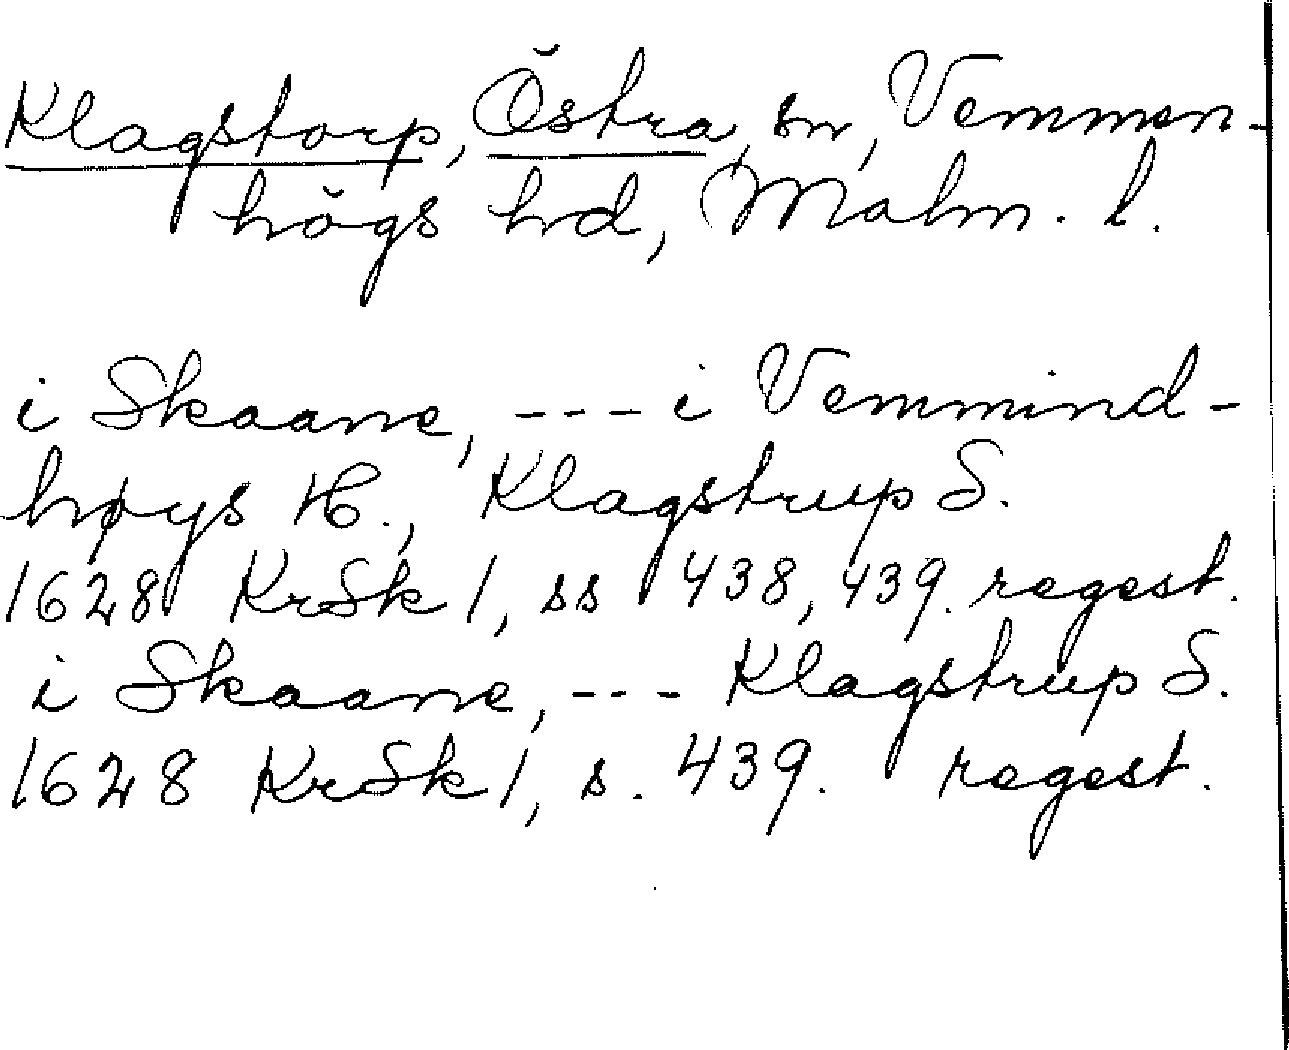 Klagstorp, Östra, sn, Vemmen-
högs hd, Malm. l.
i Skaane, --- i Vemmind-
høys H., Klagstrup S.
1628 KrSk 1, ss 438, 439. regest.
i Skaane, --- Klagstrup S.
1628 KrSk 1, s. 439. regest.